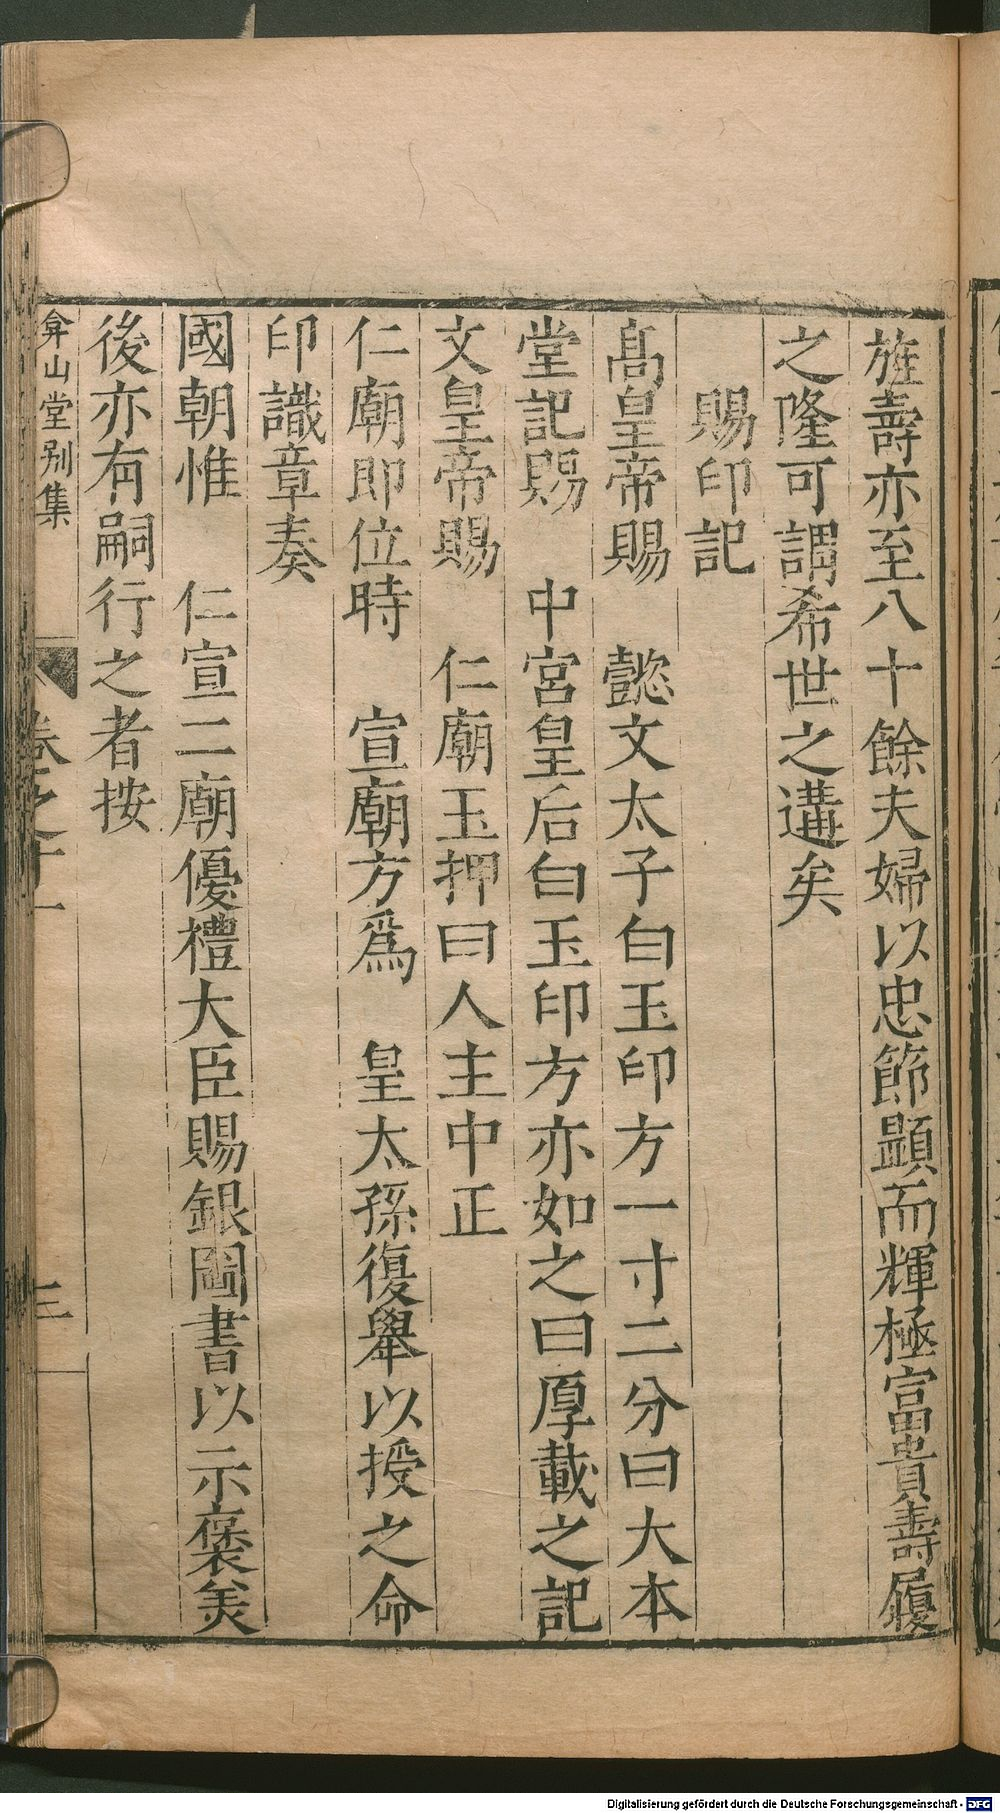 旌壽亦至八十餘夫婦以忠節顯而輝極富貴壽履
之隆可謂希世之遘矣
賜印記
髙皇帝賜　懿文太子白玉印方一寸二分曰大本
堂記賜　中宮皇后白玉印方亦如之曰厚載之記
文皇帝賜　仁廟玉押曰人主中正
仁廟即位時　宣廟方爲　皇太孫復舉以授之命
印識章奏
國朝惟　仁宣二廟優禮大臣賜銀圖書以示褒美
後亦有嗣行之者按
弇山堂别集　卷之十一　三
Digitalisierung gefördert durch die Deutsche Forschungsgemeinschaft - DFG